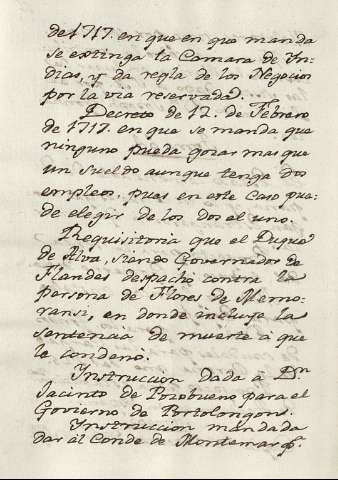 de 1717. en que en que manda
se extinga la Camara de In-
dias, y da regla de los Negocios
por la via reservada.
Decreto de 12. de Febrero
de 1717. en que se manda que
ninguno pueda gozar mas que
un sueldo aunque tenga dos
empleos, pues en este caso pue-
de elegir de los dos el uno.
Requisitoria que el Duque
de Alva, siendo Governador de
Flandes despachó contra la
persona de Flores de Memo-
ransi, en donde incluye la
sentencia de muerte á que
le condenó.
Instruccion dada á Dn
Jacinto de Pozobueno para el
Govierno de Portolongon.
Instruccion mandada
dar al Conde de Montemar